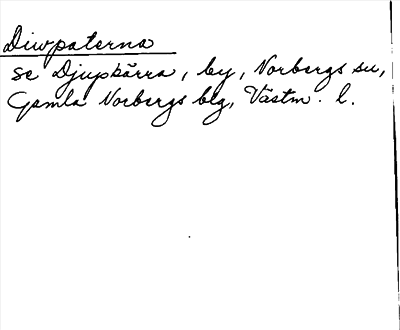 Diwpaterna
se Djupkärra, by, Norbergs sn,
Gamla Norbergs blg, Västm. l.